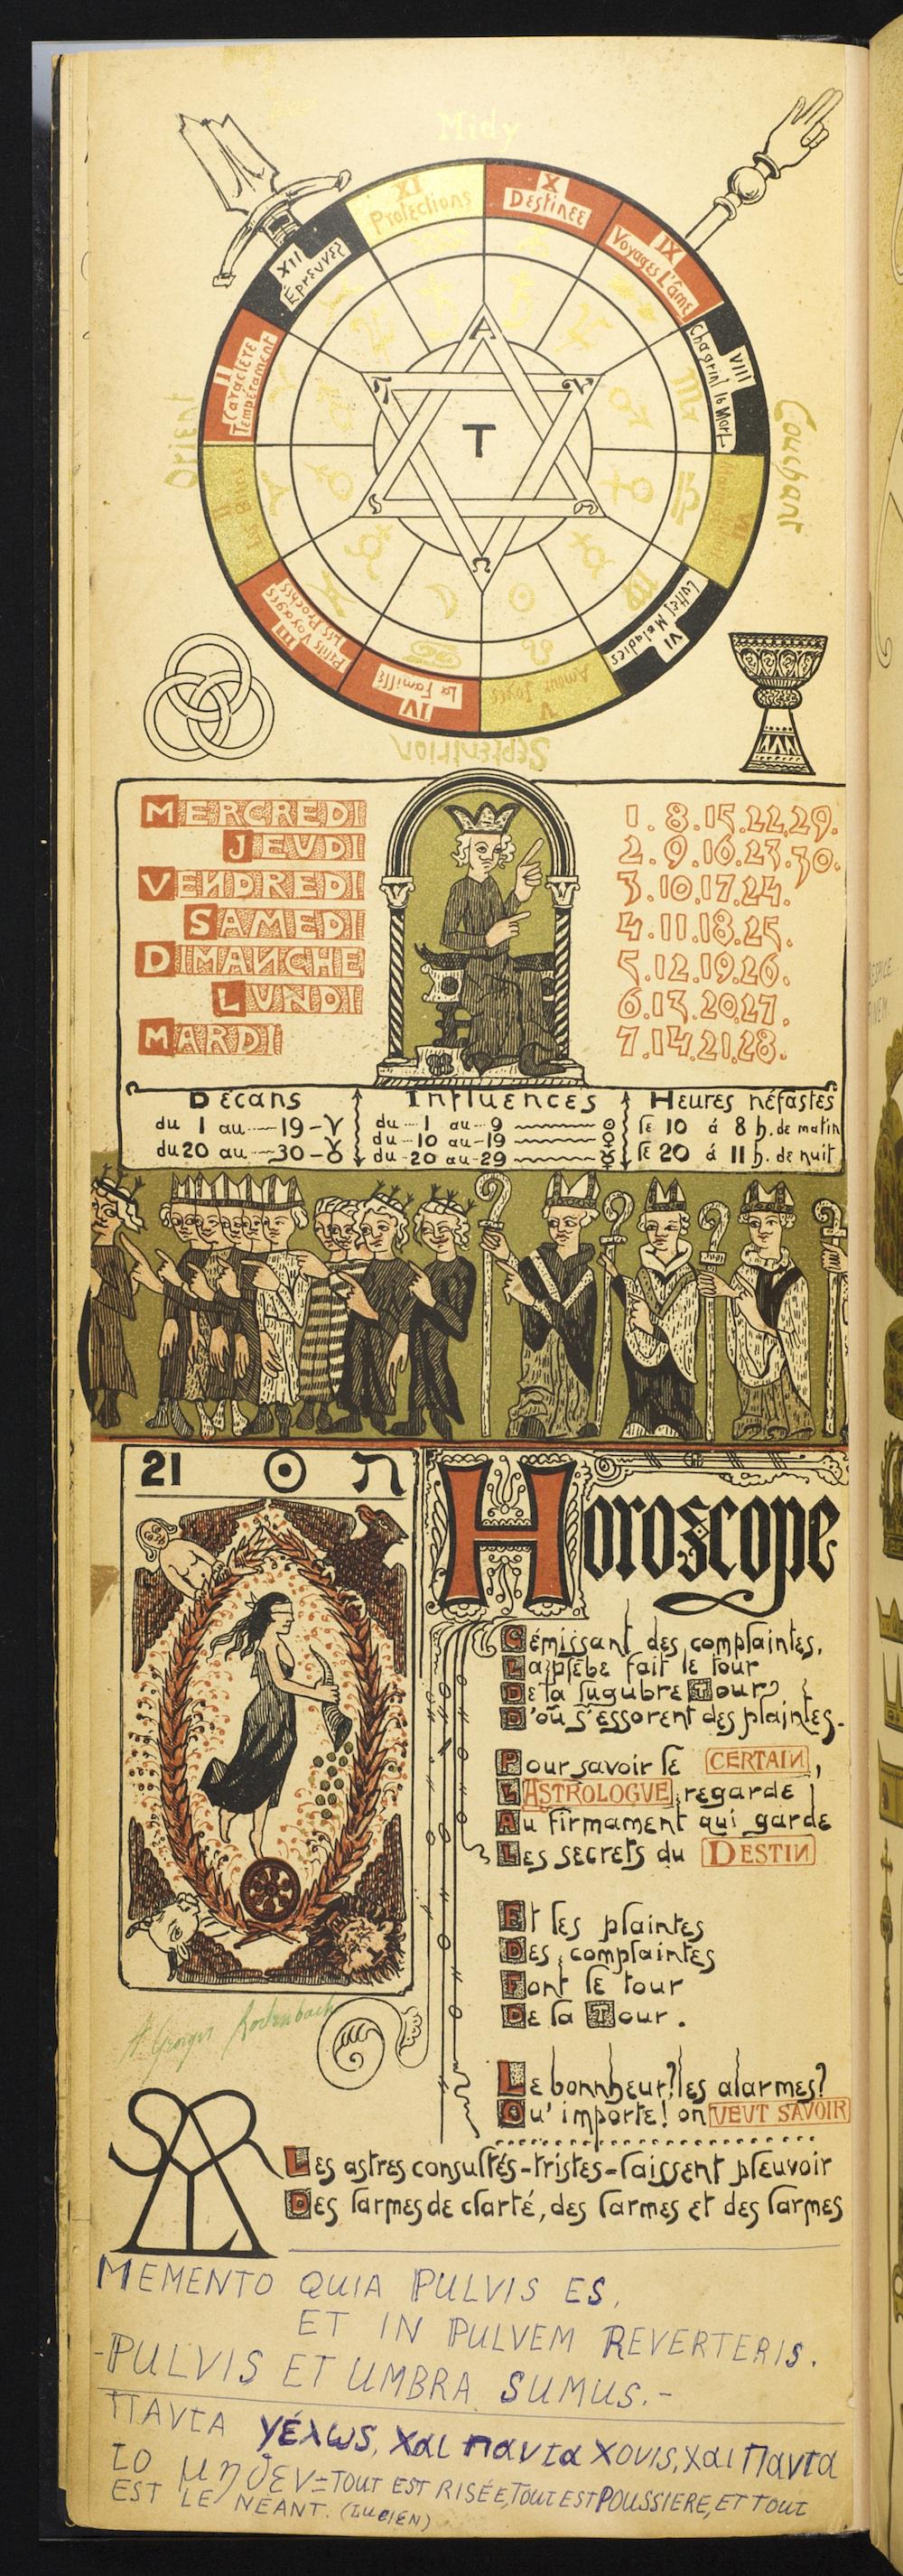 Midy
XI
Protections
X
Destinée
IX
Voyages L'âme
VIII
Chagrins la Mort
Couchant
VI
Luttes Maladies
V
Amour Joyes
Septentrion
IV
La Famille
III
Petits Voyages
Les Proches
II
Les Biens
Orient
I
Caractère
Tempérament
XII
Épreuves
A
T
Ω
MERCREDI 1.8.15.22.29.
JEUDI 2.9.16.23.30.
VENDREDI 3.10.17.24.
SAMEDI 4.11.18.25.
DIMANCHE 5.12.19.26.
LUNDI 6.13.20.27.
MARDI 7.14.21.28.
Décans
du 1 au 19 - ♈
du 20 au 30 - ♉
Influences
du 1 au 9 ☉
du 10 au 19 ♀
du 20 au 29 ☿
Heures néfastes
le 10 á 8 h. de matin
le 20 á 11 h. de nuit
21 ☉ ת
Horoscope
Gémissant des complaintes,
La plèbe fait le tour
De la lugubre Tour
D'où s'essorent des plaintes.
Pour savoir le CERTAIN,
L'ASTROLOGUE regarde
Au firmament qui garde
Les secrets du DESTIN
Et les plaintes
Des complaintes
Font le tour
De la Tour.
Le bonheur? les alarmes?
Qu'importe! on VEUT SAVOIR
Les astres consultés-tristes-laissent pleuvoir
Des larmes de clarté, des larmes et des larmes
A Georges Rodenbach
MEMENTO QUIA PULVIS ES,
ET IN PULVEM REVERTERIS.
-PULVIS ET UMBRA SUMUS.-
Παντα γέλως, χαι παντα χονις, χαι Παντα
το μηδεν = TOUT EST RISÉE, TOUT EST POUSSIERE, ET TOUT
EST LE NÉANT. (LUCIEN)